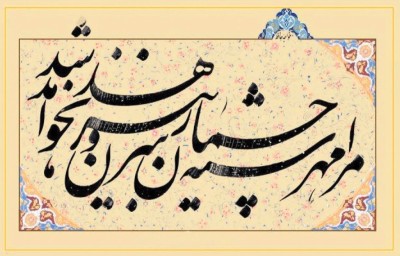 مرا مهر سیه چشمان ز سر بیرون نخواهد شد